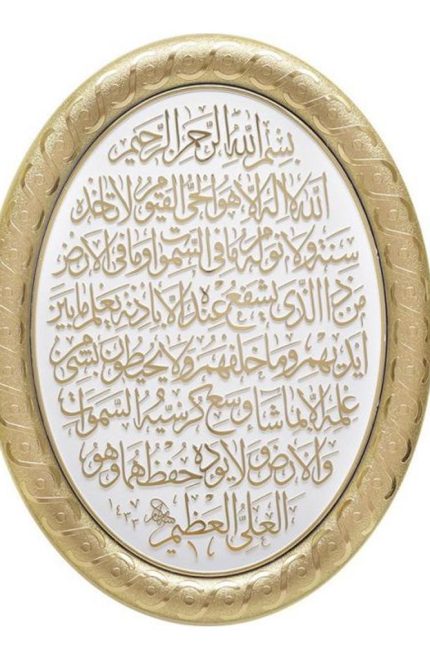 بسم الله الرحمن الرحيم
الله لا إله إلا هو الحي القيوم لا تأخذه
سنة ولا نوم له ما في السموات وما في الأرض
من ذا الذي يشفع عنده إلا بإذنه يعلم ما بين
أيديهم وما خلفهم ولا يحيطون بشيء من
علمه إلا بما شاء وسع كرسيه السموات
والأرض ولا يؤده حفظهما وهو
العلي العظيم
١٤٣٣